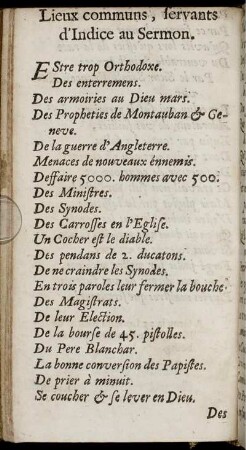 Lieux communs, servants
d'Indice au Sermon.
EStre trop Orthodoxe.
Des enterremens.
Des armoiries au Dieu mars.
Des Propheties de Montauban & Ge-
neve.
De la guerre d'Angleterre.
Menaces de nouveaux énnemis.
Deffaire 5000. hommes avec 500.
Des Ministres.
Des Synodes.
Des Carrosses en l'Eglise.
Un Cocher est le diable.
Des pendans de 2. ducatons.
De ne craindre les Synodes.
En trois paroles leur fermer la bouche
Des Magistrats.
De leur Election.
De la bourse de 45. pistolles.
Du Pere Blanchar.
La bonne conversion des Papistes.
De prier à minuit.
Se coucher & se lever en Dieu.
Des